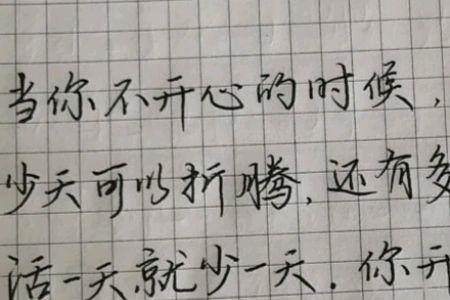 当你不开心的时候,
少天可以折腾,还有多
活一天,就少一天.你开